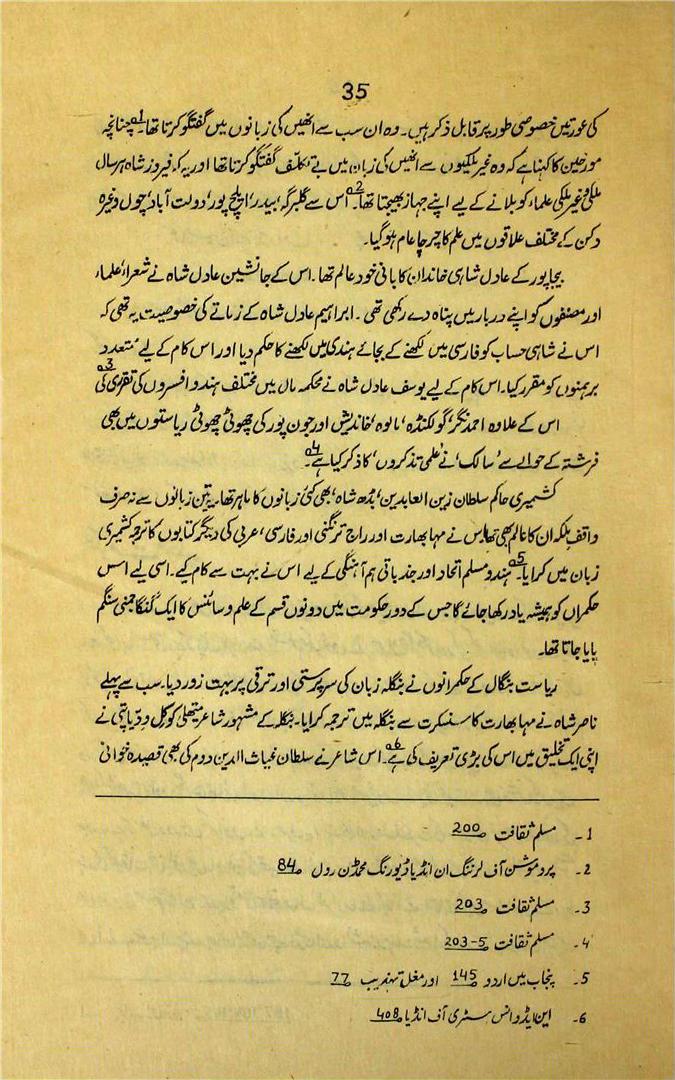 35
کی عورتیں خصوصی طور پر قابل ذکر ہیں۔ وہ ان سب سے انھیں کی زبانوں میں گفتگو کرتا تھا۔1؎ چنانچہ
مورخین کا کہنا ہے کہ وہ غیر ملکیوں سے انھیں کی زبان میں بے تکلف گفتگو کرتا تھا اور یہ کہ فیروز شاہ ہر سال
ملکی و غیر ملکی علماء کو بلانے کے لیے اپنے جہاز بھیجتا تھا۔2؎ اس سے گلبرگہ، بیدر، ایلچ پور، دولت آباد، چول وغیرہ
دکن کے مختلف علاقوں میں علم کا چرچا عام ہوگیا۔
بیجاپور کے عادل شاہی خاندان کا بانی خود عالم تھا۔ اس کے جانشین عادل شاہ نے شعراء، علماء
اور مصنفوں کو اپنے دربار میں پناہ دے رکھی تھی۔ ابراہیم عادل شاہ کے زمانے کی خصوصیت یہ تھی کہ
اس نے شاہی حساب کو فارسی میں لکھنے کے بجائے ہندی میں لکھنے کا حکم دیا اور اس کام کے لیے متعدد
برہمنوں کو مقرر کیا۔ اس کام کے لیے یوسف عادل شاہ نے محکمہ مال میں مختلف ہندو افسروں کی تقرری کی3؎
اس کے علاوہ احمد نگر، گولکنڈہ، مالوہ، خاندیش اور جون پور کی چھوٹی چھوٹی ریاستوں میں بھی
فرشتہ کے حوالے سے 'سالک' نے 'علمی تذکروں' کا ذکر کیا ہے۔4؎
کشمیری حاکم سلطان زین العابدین 'بڈھ شاہ' بھی کئی زبانوں کا ماہر تھا۔ یہ تین زبانوں سے نہ صرف
واقف بلکہ ان کا عالم بھی تھا۔ اس نے مہابھارت اور راج ترنگنی اور فارسی، عربی کی دیگر کتابوں کا ترجمہ کشمیری
زبان میں کرایا۔5؎ ہندو مسلم اتحاد اور جذباتی ہم آہنگی کے لیے اس نے بہت سے کام کیے۔ اسی لیے اس
حکمراں کو ہمیشہ یاد رکھا جائے گا جس کے دور حکومت میں دونوں قسم کے علم و سائنس کا ایک گنگا جمنی سنگم
پایا جاتا تھا۔
ریاست بنگال کے حکمرانوں نے بنگلہ زبان کی سرپرستی اور ترقی پر بہت زور دیا۔ سب سے پہلے
ناصر شاہ نے مہابھارت کا سنسکرت سے بنگلہ میں ترجمہ کرایا۔ بنگلہ کے مشہور شاعر میتھلی کوکل ودیاپتی نے
اپنی ایک تخلیق میں اس کی بڑی تعریف کی ہے۔6؎ اس شاعر نے سلطان غیاث الدین دوم کی بھی قصیدہ خوانی
1۔ مسلم ثقافت 200
2۔ پروموشن آف لرننگ ان انڈیا ڈیورنگ محمڈن رول 84
3۔ مسلم ثقافت 203
4۔ مسلم ثقافت 203-5
5۔ پنجاب میں اردو 145 اور مغل تہذیب 77
6۔ این ایڈوانس ہسٹری آف انڈیا 408